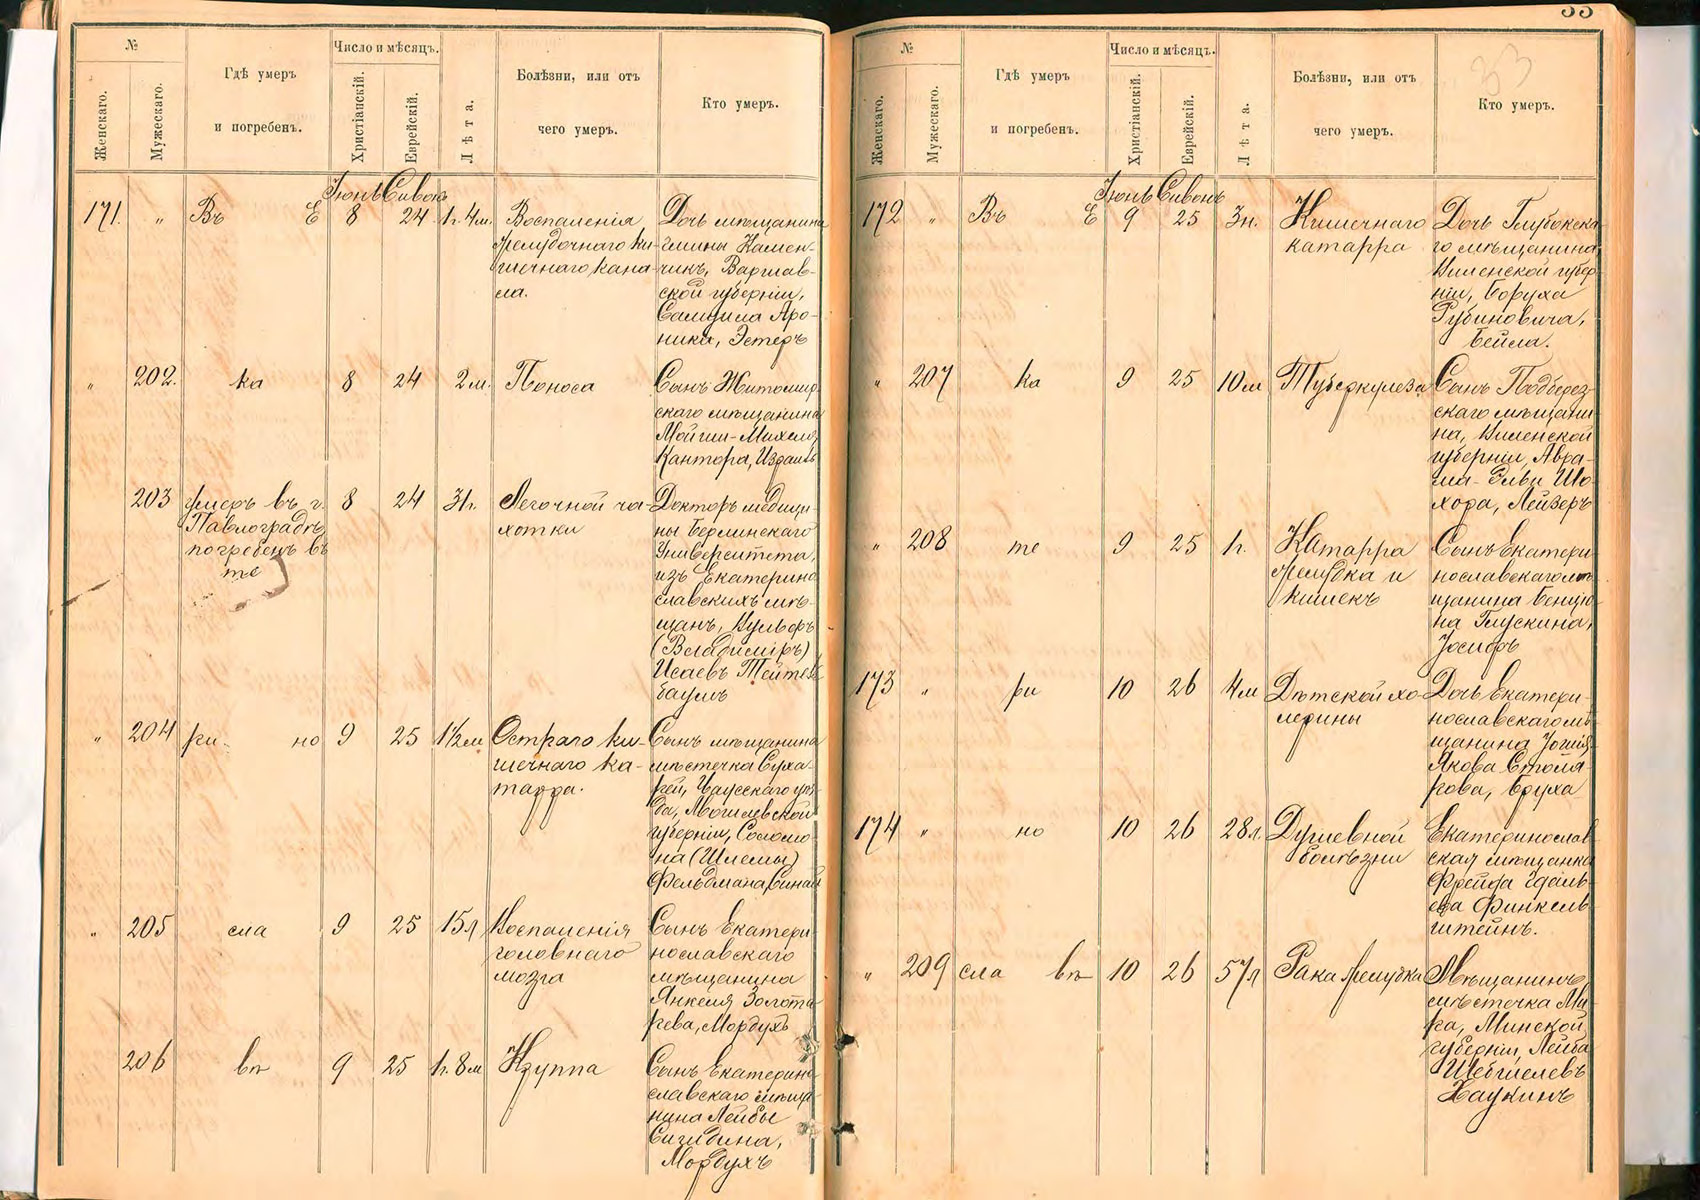 33
№
Женскаго.
Мужескаго.
Гдѣ умеръ
и погребенъ.
Число и мѣсяцъ.
Христіанскій.
Еврейскій.
Лѣта.
Болѣзни, или отъ
чего умеръ.
Кто умеръ.
Іюнь Сивонъ
171. „ Въ Е 8 24 1г. 4м.
Воспаленія
желудочнаго ки-
шечнаго кана-
ла.
Дочь мѣщанина
гмины Камен-
чикъ, Варшав-
ской губерніи,
Самуила Аро-
ника, Эстеръ
„ 202. ка 8 24 2м. Поноса
Сынъ Житомир
скаго мѣщанина
Мойши-Михеля
Кантора, Израиль
203 умеръ въ г.
Павлоградѣ,
погребенъ въ
те
8 24 31г.
Легочной ча-
хотки
Докторъ медици-
ны Берлинскаго
Университета,
изъ Екатерино
славскихъ мѣ-
щанъ, Вульфъ
(Владиміръ)
Исаевъ Тейтель
баумъ
„ 204 ри- но 9 25 1½м
Остраго ки-
шечнаго ка-
тарра.
Сынъ мѣщанина
мѣстечка Суха-
рей, Чаусскаго уѣз
да, Могилевской
губерніи, Соломо
на (Шлемы)
Фельдмана, Синай
„ 205 сла 9 25 15л
Воспаленія
головнаго
мозга
Сынъ Екатери
нославскаго
мѣщанина
Янкеля Золота
рева, Мордухъ
206 вѣ 9 25 1г. 8м Круппа
Сынъ Екатерино
славскаго мѣща
нина Лейбы
Сигидина,
Мордухъ
№
Женскаго.
Мужескаго.
Гдѣ умеръ
и погребенъ.
Число и мѣсяцъ.
Христіанскій.
Еврейскій.
Лѣта.
Болѣзни, или отъ
чего умеръ.
33
Кто умеръ.
Іюнь Сивонъ
172 „ Въ Е 9 25 3н.
Кишечнаго
катарра
Дочь Глубокска
го мѣщанина,
Виленской губер
ніи, Боруха
Рубиновича,
Бейла.
„ 207 ка 9 25 10м Туберкулеза
Сынъ Подберез
скаго мѣщани-
на, Виленской
губерніи, Авра-
ма-Эльи Шо-
хора, Лейзеръ
„ 208 те 9 25 1г.
Катарра
желудка и
кишекъ
Сынъ Екатери
нославскаго мѣ
щанина Бенціо-
на Глускина,
Іосифъ
173 „ ри 10 26 4м
Дѣтской хо-
лерины
Дочь Екатери-
нославскаго мѣ
щанина
Якова Столя-
рова, Бруха
174 „ но 10 26 28л.
Душевной
болѣзни
Екатеринослав
ская мѣщанка
Фрейда
Финкель-
штейнъ.
„ 209 сла вѣ 10 26 57л Рака желудка
Мѣщанинъ
мѣстечка Ми-
ра, Минской
губерніи, Лейба
Шебшелевъ
Хаукинъ